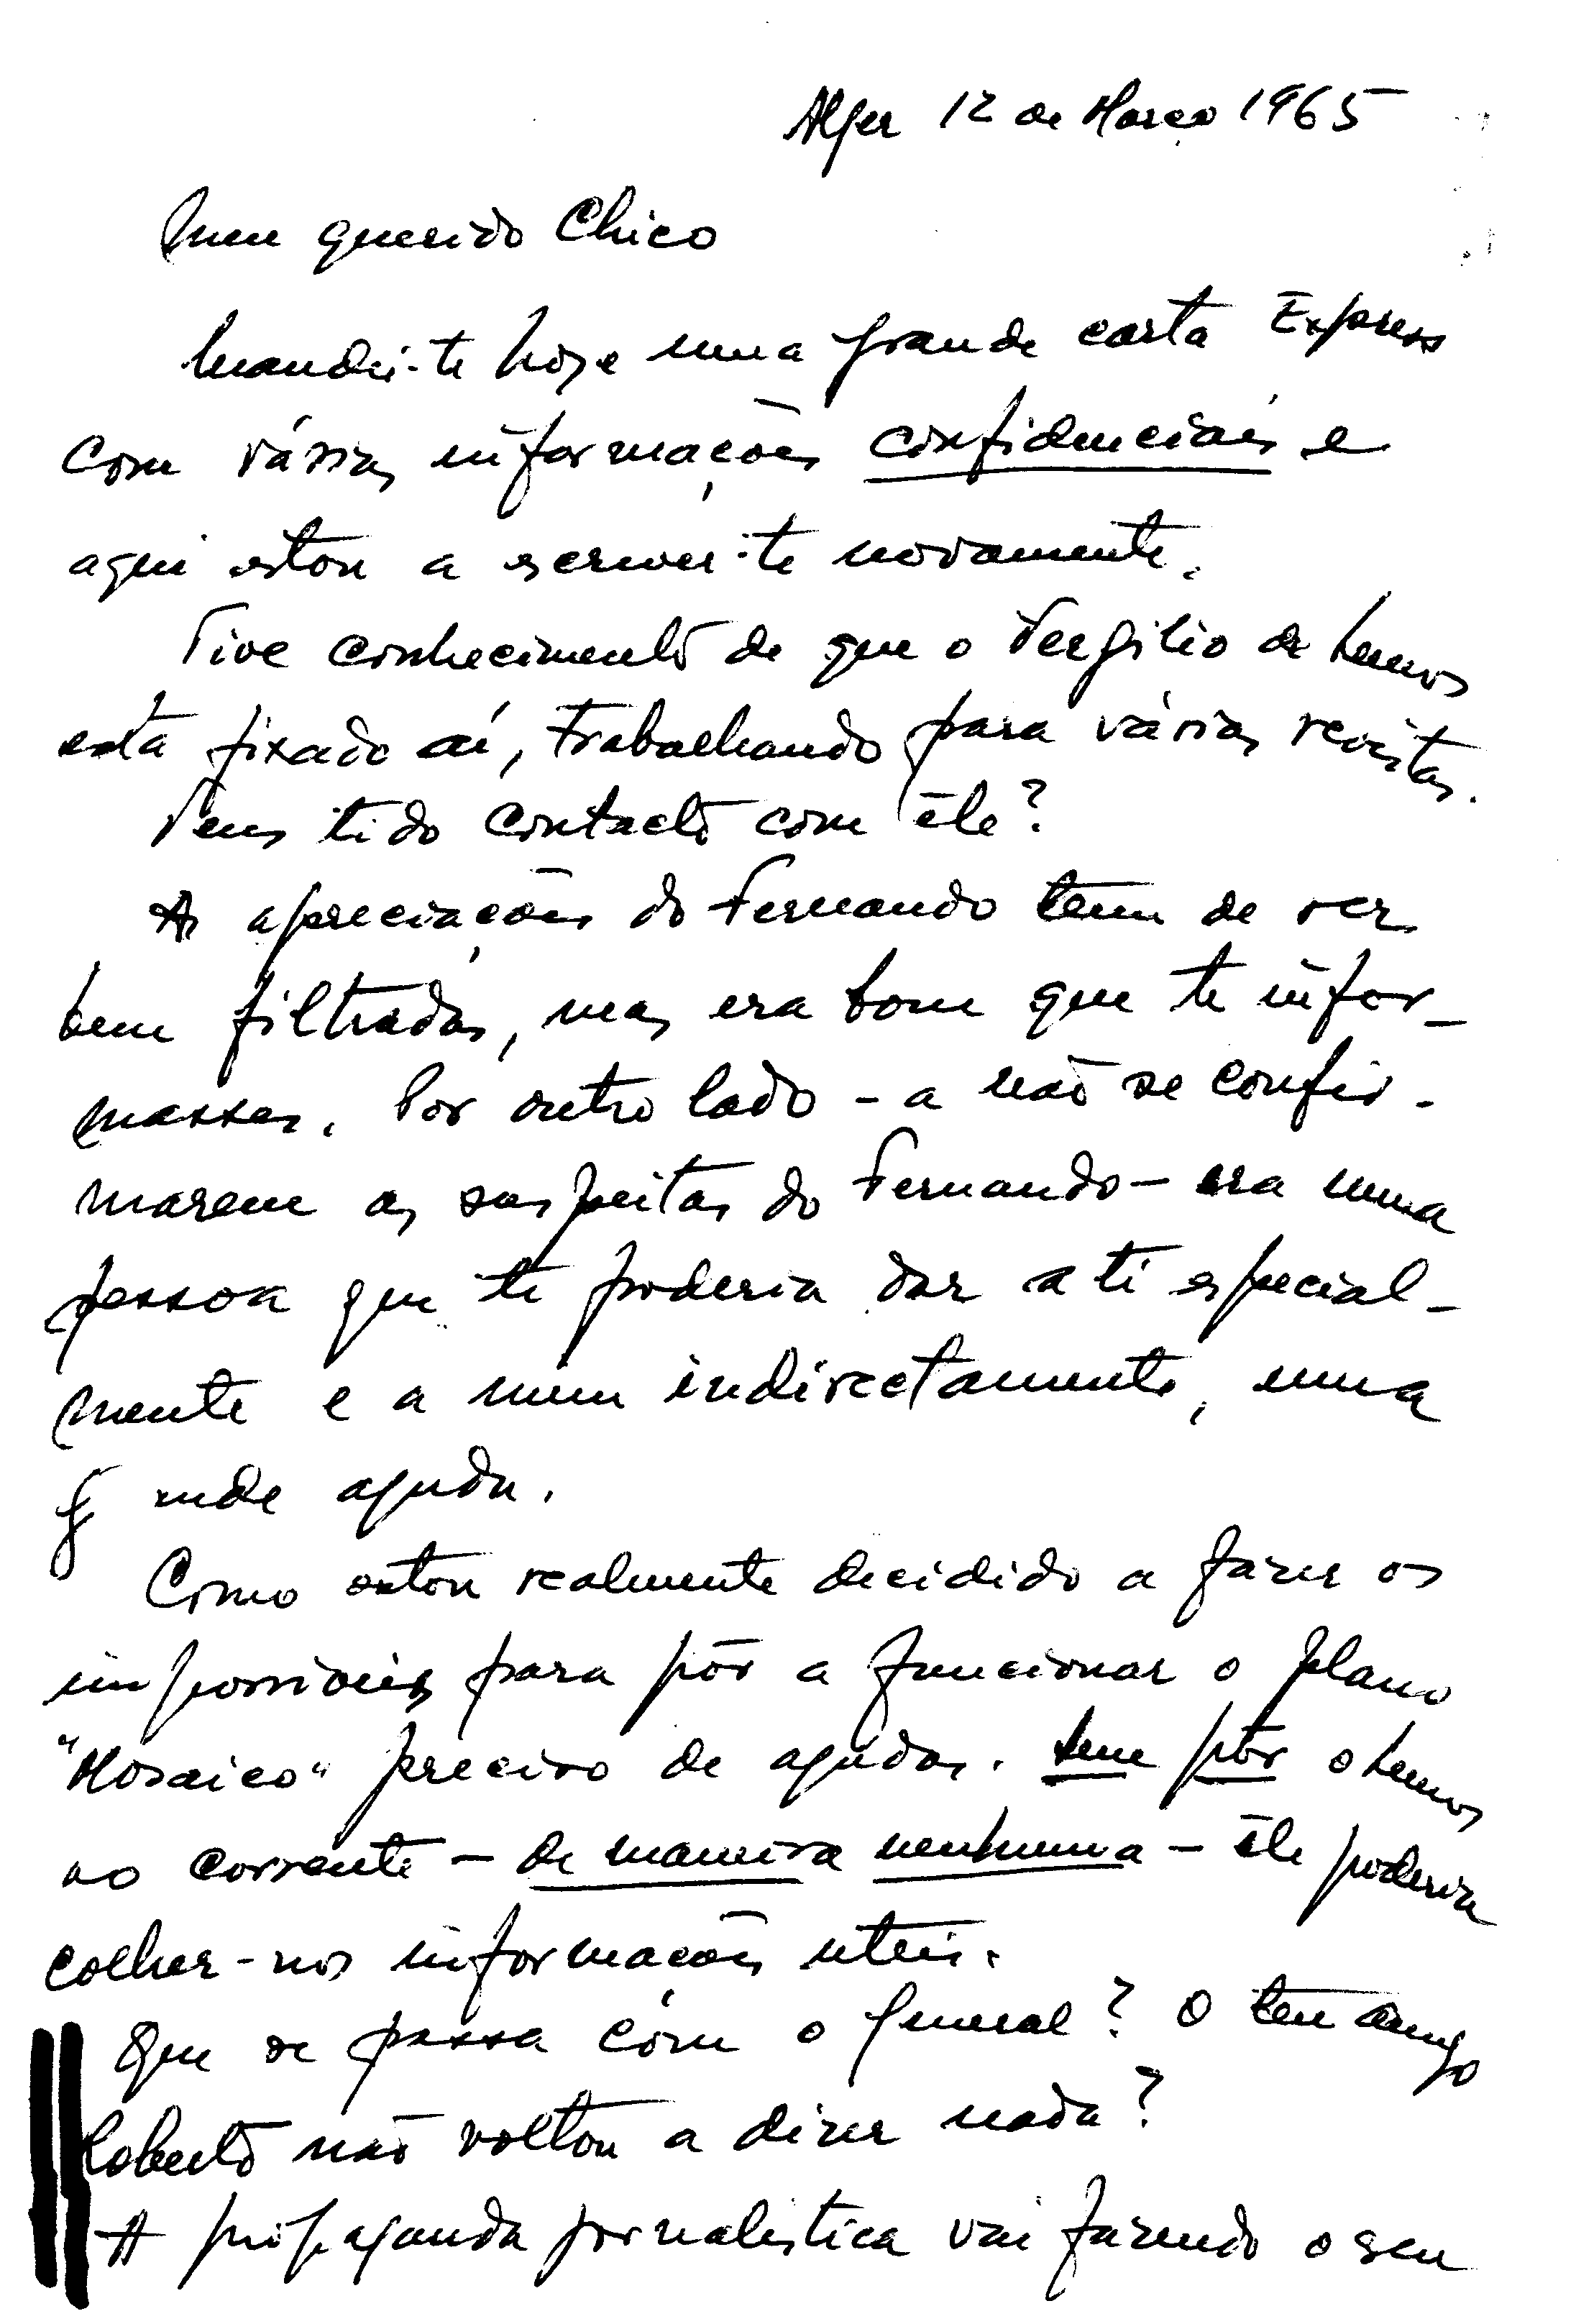 Alger 12 de Março 1965
Meu querido Chico
Mandei-te hoje uma grande carta Express
com várias informações confidenciais e
aqui estou a escrever-te novamente.
Tive conhecimento de que o Vergilio de Lemos
está fixado aí, trabalhando para várias revistas.
Tens tido contacto com êle?
As apreciações do Fernando teem de ser
bem filtradas, mas era bom que te infor-
masses. Por outro lado - a não se confir-
marem as suspeitas do Fernando - era uma
pessoa que te poderia dar a ti especial-
mente e a mim indirectamente, uma
grande ajuda.
Como estou realmente decidido a fazer os
impossiveis para pôr a funcionar o plano
"Mosaico" preciso de ajudas. Sem pôr o Lemos
ao corrente - de maneira nenhuma - êle poderia
colher-nos informações uteis.
Que se passa com o General? O teu amigo
Roberto não voltou a dizer nada?
A propaganda jornalistica vai fazendo o seu